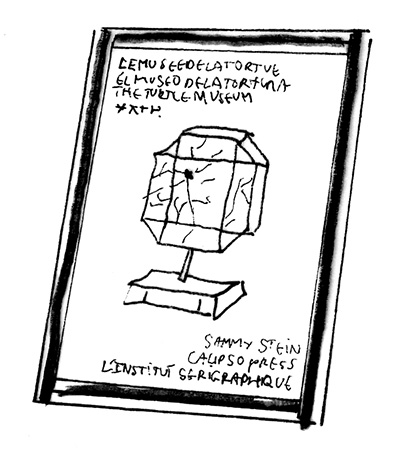 LE MUSEE DE LA TORTUE
EL MUSEO DE LA TORTUGA
THE TURTLE MUSEUM
SAMMY STEIN
CALIPSO PRESS
L'INSTITUT SERIGRAPHIQUE